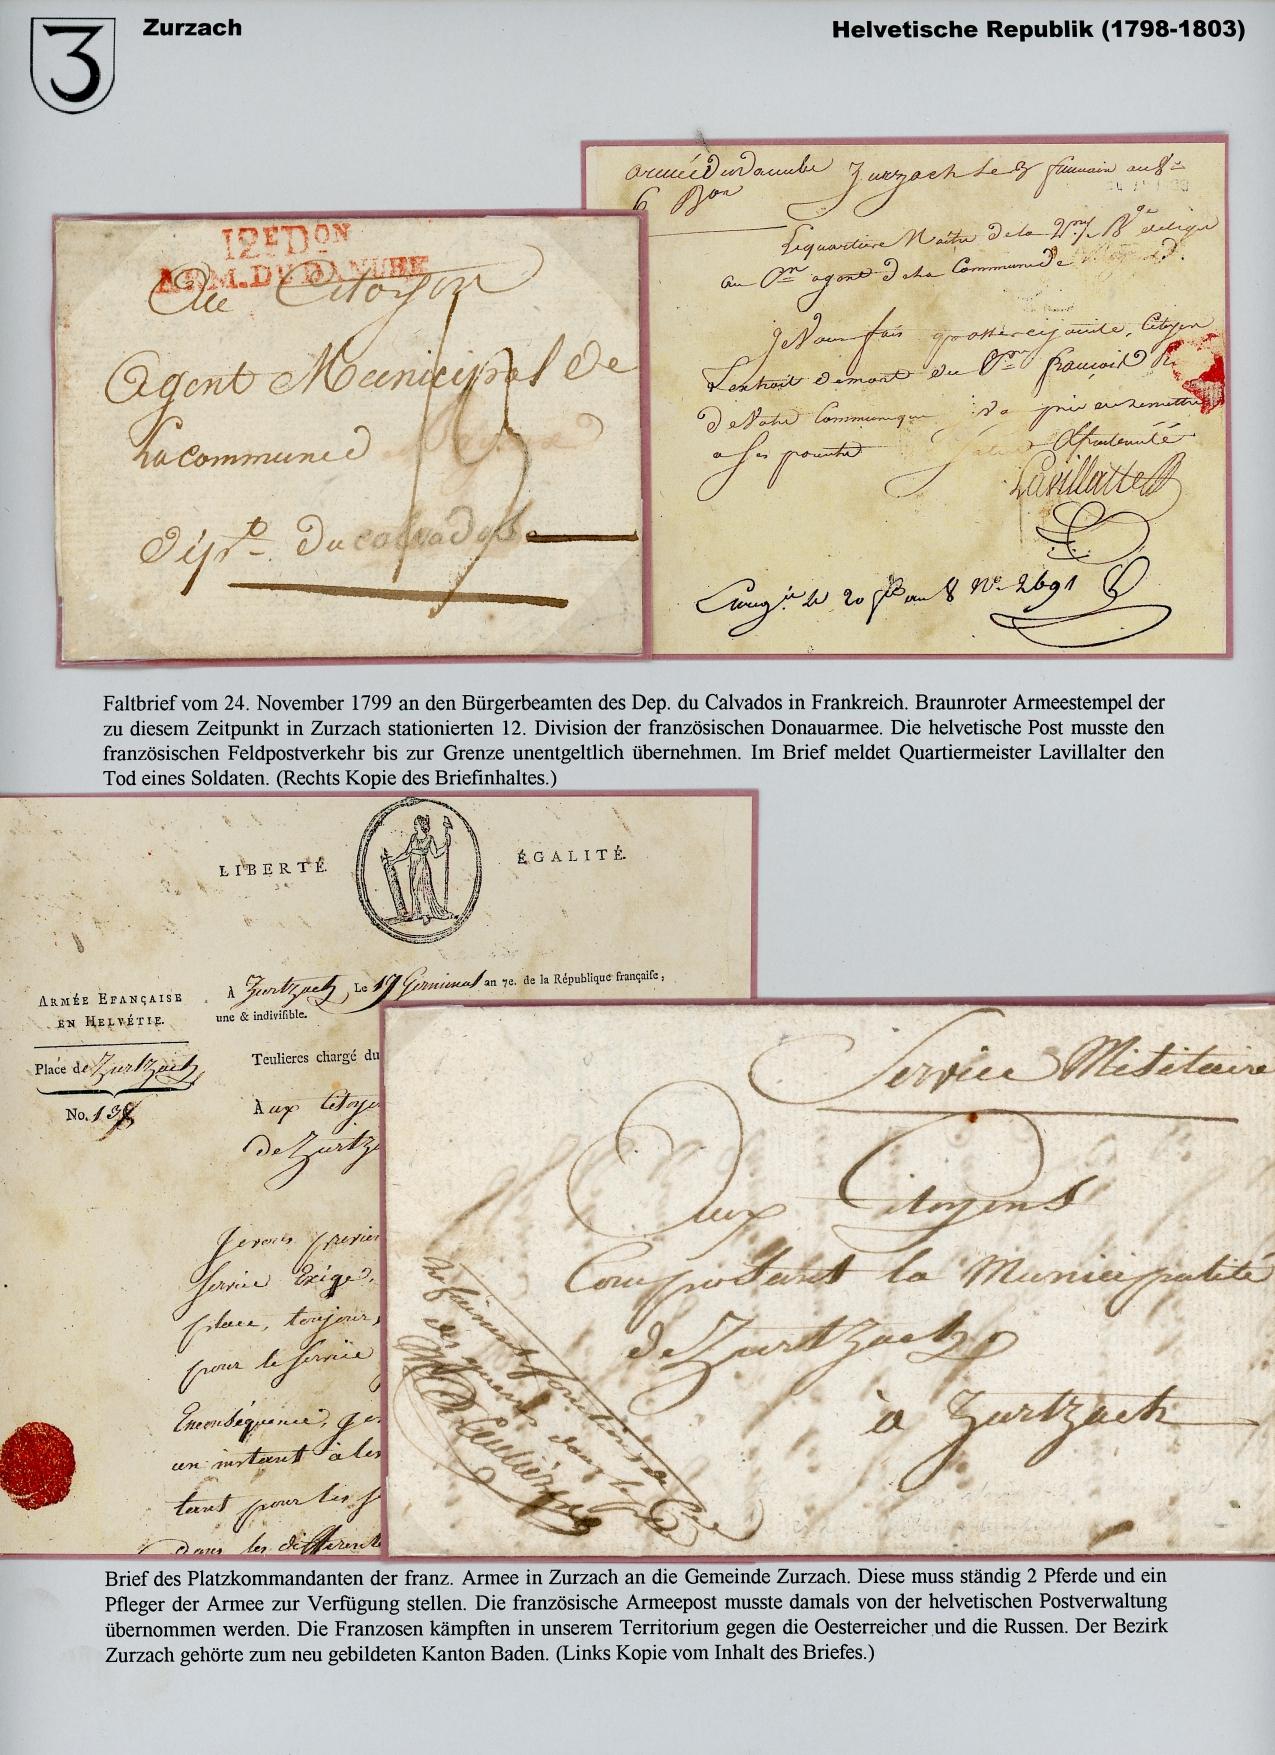 3
Zurzach
Helvetische Republik (1798-1803)
12E DON
ARM. DU DANUBE
Au Citoyen
Agent Municipal de
La commune d
Dépt. du calvados
armée du Danube Zurzach Le 3 frimair an 8e
6 Bon
Le quartier Maitre de la
au agent de la Commune de
Je Vous fais passer ci joint, Citoyen
L'extrait demort du Cen francois
de Votre Commune
Salut & fraternité
Lavillatte
an 8 No 2691
Faltbrief vom 24. November 1799 an den Bürgerbeamten des Dep. du Calvados in Frankreich. Braunroter Armeestempel der
zu diesem Zeitpunkt in Zurzach stationierten 12. Division der französischen Donauarmee. Die helvetische Post musste den
französischen Feldpostverkehr bis zur Grenze unentgeltlich übernehmen. Im Brief meldet Quartiermeister Lavillalter den
Tod eines Soldaten. (Rechts Kopie des Briefinhaltes.)
LIBERTÉ
ÉGALITÉ.
ARMÉE EFANÇAISE
EN HELVÉTIE.
Place de Zurtzach
No. 138
À Zurtzach, Le 17 Germinal an 7e. de la République françaife,
une & indivifible.
Teulieres chargé du
Aux Citoye
de Zurtza
Je vous previen
service Exige,
place, toujours
pour le service
Enconséquence, je
un instant à les
tant pour les
dans les differents
Service Militaire
Aux Citoyens
Composant la Municipalité
de Zurtzach
à Zurtzach
Brief des Platzkommandanten der franz. Armee in Zurzach an die Gemeinde Zurzach. Diese muss ständig 2 Pferde und ein
Pfleger der Armee zur Verfügung stellen. Die französische Armeepost musste damals von der helvetischen Postverwaltung
übernommen werden. Die Franzosen kämpften in unserem Territorium gegen die Oesterreicher und die Russen. Der Bezirk
Zurzach gehörte zum neu gebildeten Kanton Baden. (Links Kopie vom Inhalt des Briefes.)